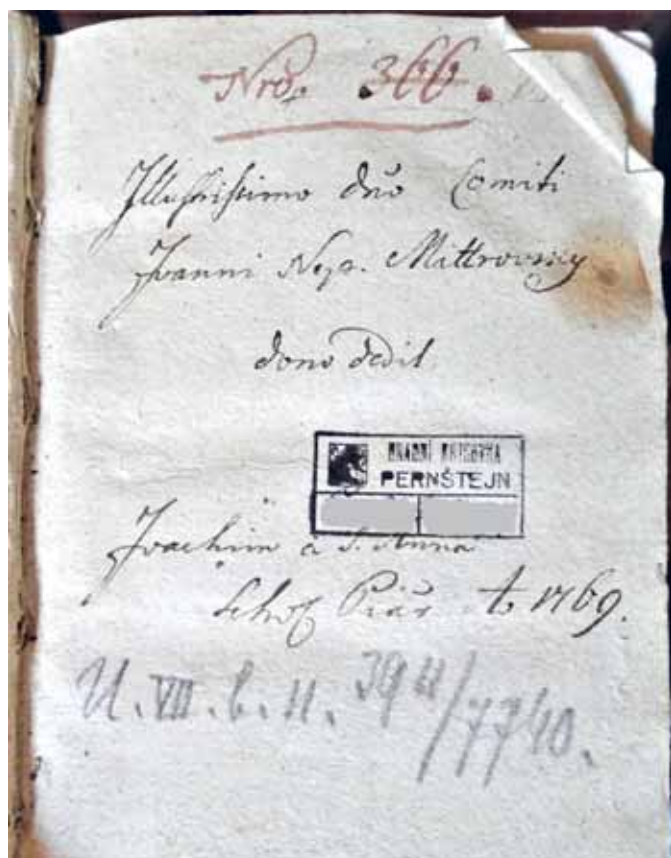 Nrō. 366.
Illustrissimo dn̄o Comiti
Joanni Nep. Mittrovsky
dono dedit
HRADNÍ KNIHOVNA
PERNŠTEJN
Joachim a S. Anna
Schol Piar Ao 1769.
U. VII. b. 11.
7740.